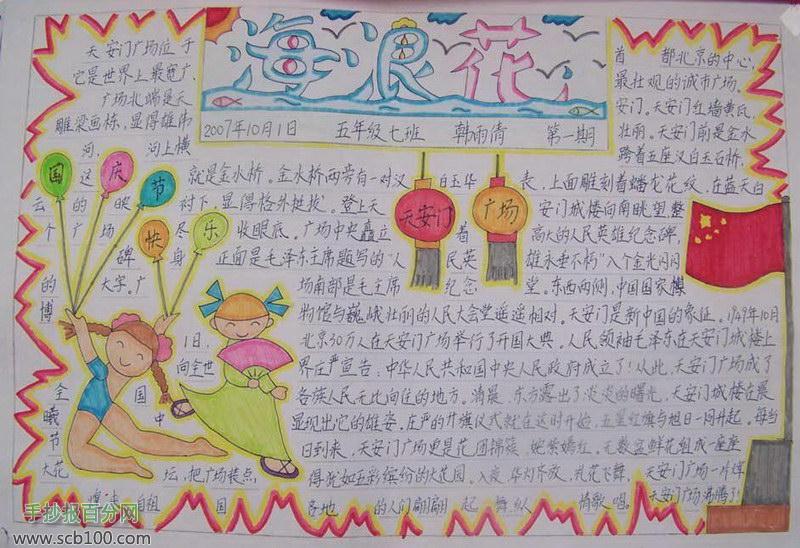 海浪花
2007年10月1日 五年级七班 韩雨倩 第一期
天安门广场位于 首都北京的中心,
它是世界上最宽广、 最壮观的城市广场。
广场北端是天 安门。天安门红墙黄瓦,
雕梁画栋,显得雄伟 壮丽。天安门前是金水
河,河上横 跨着五座汉白玉石桥,
这就是金水桥。金水桥两旁有一对汉白玉华表,上面雕刻着蟠龙花纹,在蓝天白
云的映衬下,显得格外挺拔。登上天安门城楼向南眺望,整
个广场尽收眼底。广场中央矗立着高大的人民英雄纪念碑,
碑身正面是毛泽东主席题写的“人民英雄永垂不朽”八个金光闪闪
的大字。广场南部是毛主席纪念堂。东西两侧,中国国家博
物馆与巍峨壮丽的人民大会堂遥遥相对。天安门是新中国的象征。1949年10月
1日,北京30万人在天安门广场举行了开国大典,人民领袖毛泽东在天安门城楼上
向全世界庄严宣告,中华人民共和国中央人民政府成立了!从此,天安门广场成了
全国各族人民无比向往的地方。清晨,东方露出了淡淡的曙光,天安门城楼在晨
曦中显现出它的雄姿。庄严的升旗仪式就在这时开始,五星红旗与旭日一同升起。每当
节日到来,天安门广场更是花团锦簇,姹紫嫣红。无数盆鲜花组成一座座
大花坛,把广场装点得犹如五彩缤纷的大花园。入夜,华灯齐放,礼花飞舞,天安门广场一片
自祖国各地的人们翩翩起舞,纵情歌唱。天安门广场沸腾了!
国 庆 节
快 乐
天安门 广场
手抄报百分网
www.scb100.com